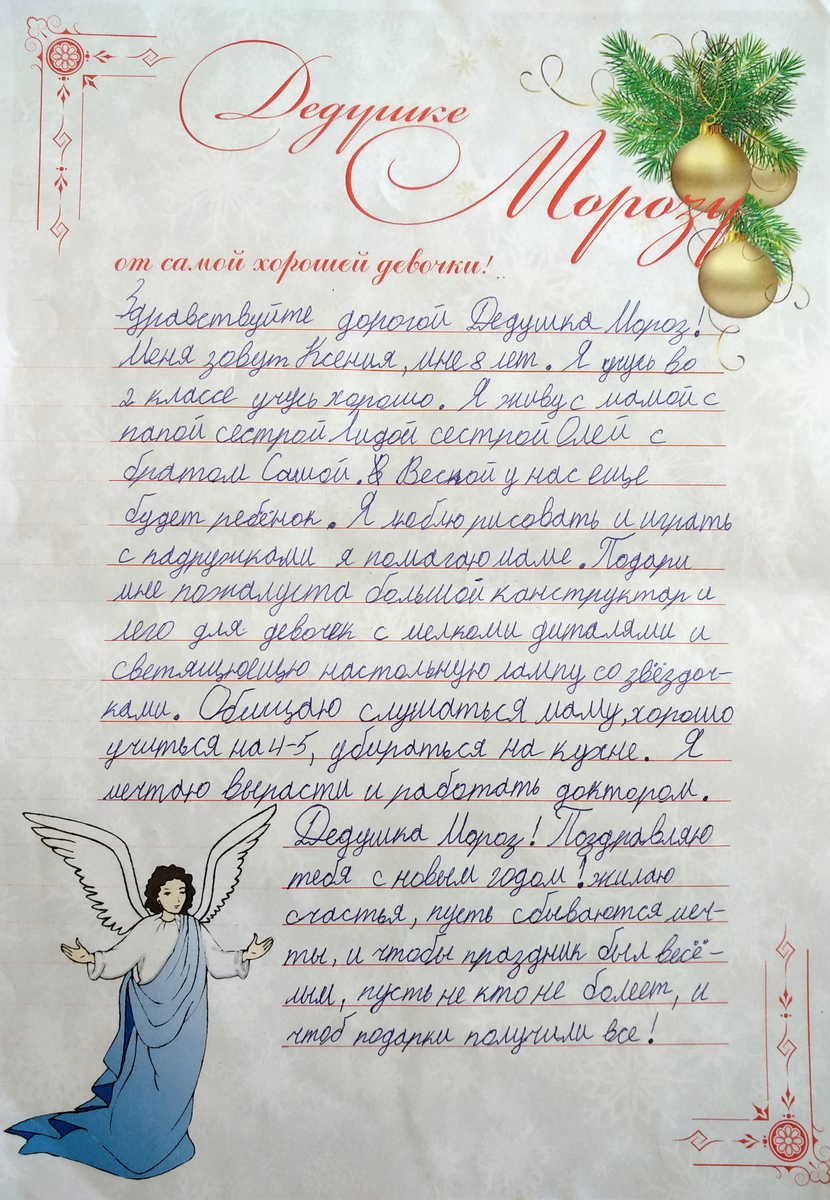 Дедушке
Морозу
от самой хорошей девочки!
Здравствуйте дорогой Дедушка Мороз!
Меня зовут Ксения, мне 8 лет. Я учусь во
2 классе учусь хорошо. Я живу с мамой с
папой сестрой Лидой сестрой Олей с
братом Сашой. В Весной у нас еще
будет ребёнок. Я люблю рисовать и играть
с падружками я помагаю маме. Подари
мне пожалуста большой канструктар и
лего для девочек с мелкоми диталями и
светящюющюю настольную лампу со звёздоч-
ками. Обищаю слушаться маму, хорошо
учиться на 4-5, убираться на кухне. Я
мечтаю вырасти и работать доктором.
Дедушка Мороз! Поздравляю
тебя с новым годом! жилаю
счастья, пусть сбываются меч-
ты, и чтобы праздник был весё-
лым, пусть не кто не болеет, и
чтоб подарки получили все!